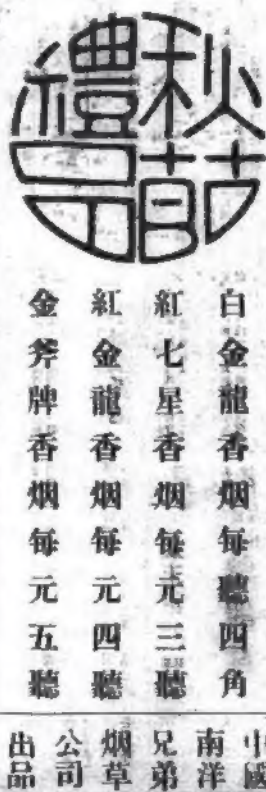 秋節禮品
白金龍香烟每聽四角
紅七星香烟每元三聽
紅金龍香烟每元四聽
金斧牌香烟每元五聽
中國南洋兄弟烟草公司出品